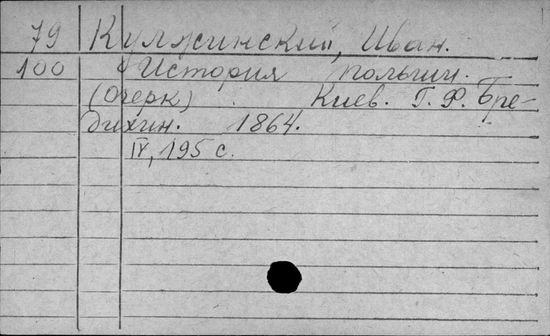 79 Кулжинский, Иван.
100 История Польши.
(Очерк) Киев. Г. Ф. Бре-
дихин. 1864.
IV, 195 с.